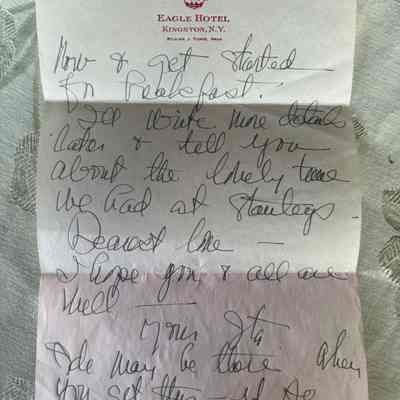 EAGLE HOTEL
KINGSTON, N.Y.
Now & get started
for breakfast.
I'll write more details
later & tell you
about the lovely time
we had at Stanleys
Dearest love —
I hope you & all are
well —
Yours
may be there when
you get this